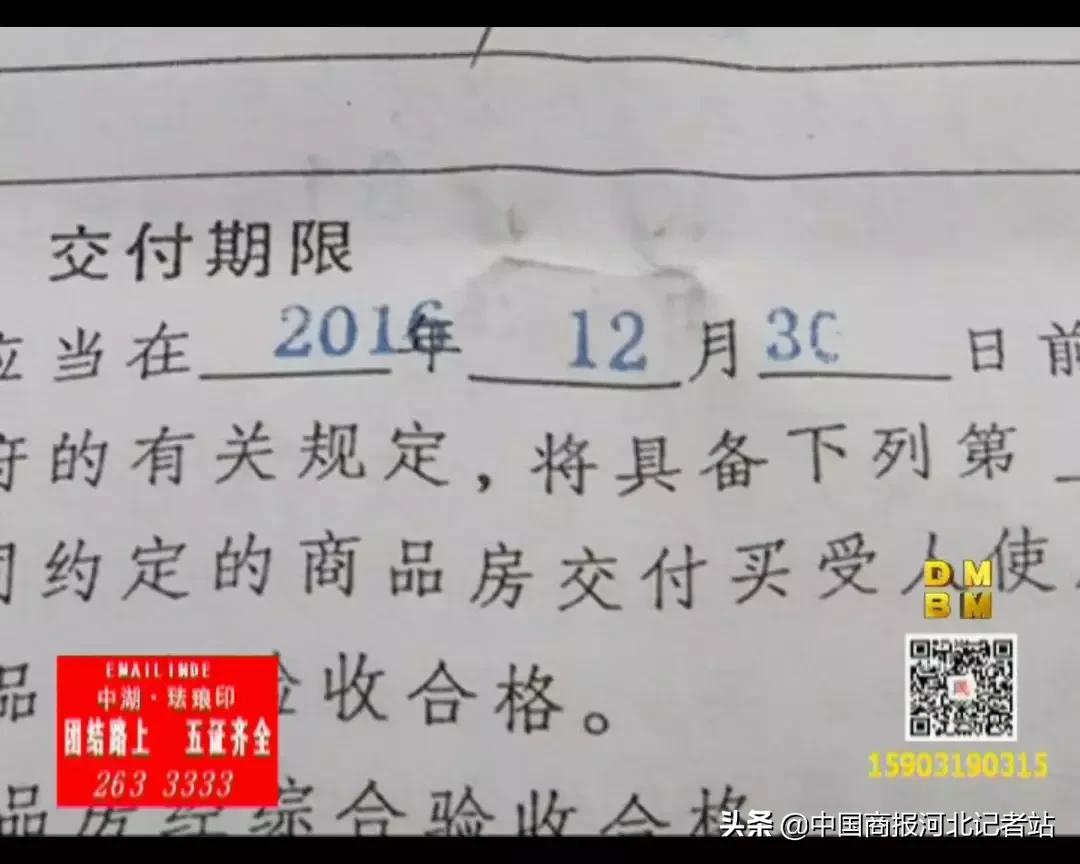 交付期限
应当在 2016年 12月30 日前
的有关规定，将具备下列第
约定的商品房交付买受人使
DM
BM
品 验收合格。
EMAILINDE
中湖·珐琅印
团结路上 五证齐全
263 3333
15903190315
品房经综合验收合格
头条 @中国商报河北记者站